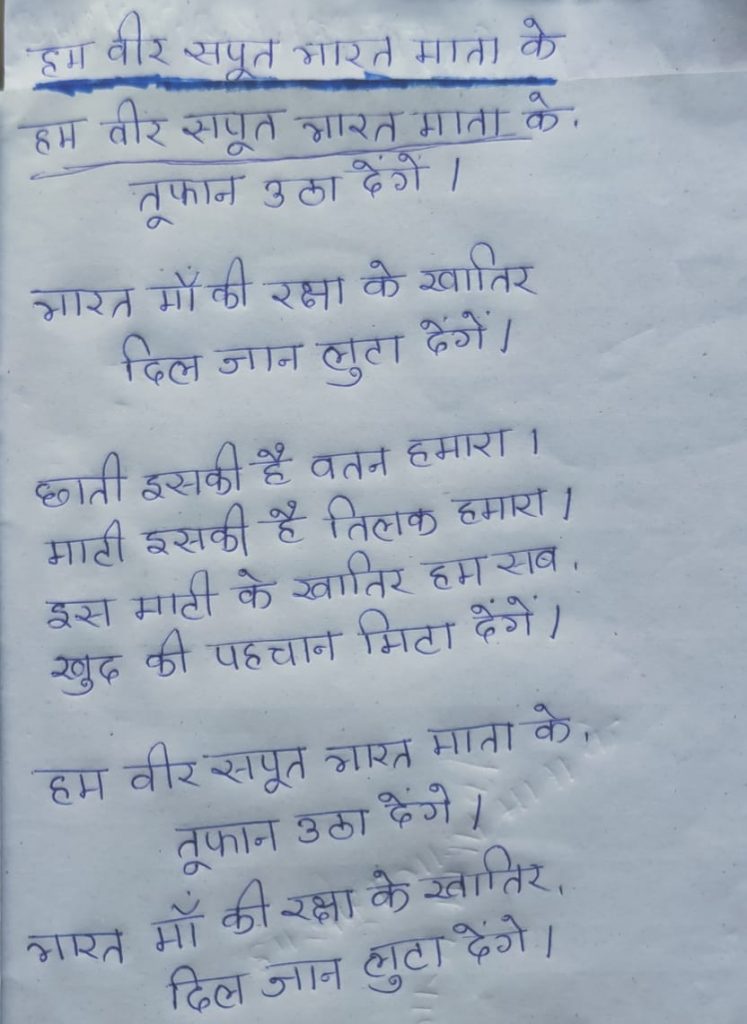 हम वीर सपूत भारत माता के
हम वीर सपूत भारत माता के,
तूफान उठा देंगें।
भारत माँ की रक्षा के खातिर
दिल जान लुटा देंगें।
छाती इसकी है वतन हमारा।
माटी इसकी है तिलक हमारा।
इस माटी के खातिर हम सब,
खुद की पहचान मिटा देंगें।
हम वीर सपूत भारत माता के,
तूफान उठा देंगे।
भारत माँ की रक्षा के खातिर,
दिल जान लुटा देंगे।